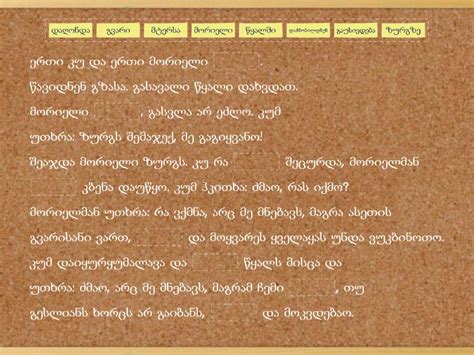 დაღონდა გვარი მტერსა მორიელი წყალში დაძმობილდნენ გაუსივდება ზურგზე
ერთი კუ და ერთი მორიელი .
წავიდნენ გზასა. გასავალი წყალი დახვდათ.
მორიელი , გასვლა არ ეძლო. კუმ
უთხრა: ზურგს შემაჯექ, მე გაგიყვანო!
შეაჯდა მორიელი ზურგს. კუ რა შეცურდა, მორიელმან
კბენა დაუწყო. კუმ ჰკითხა: ძმაო, რას იქმო?
მორიელმან უთხრა: რა ვქმნა, არც მე მნებავს, მაგრა ასეთის
გვარისანი ვართ, და მოყვარეს ყველაყას უნდა ვუკბინოთო.
კუმ დაიყურყუმალავა და წყალს მისცა და
უთხრა: ძმაო, არც მე მნებავს, მაგრამ ჩემი , თუ
გესლიანს ხორცს არ გაიბანს, და მოკვდებაო.